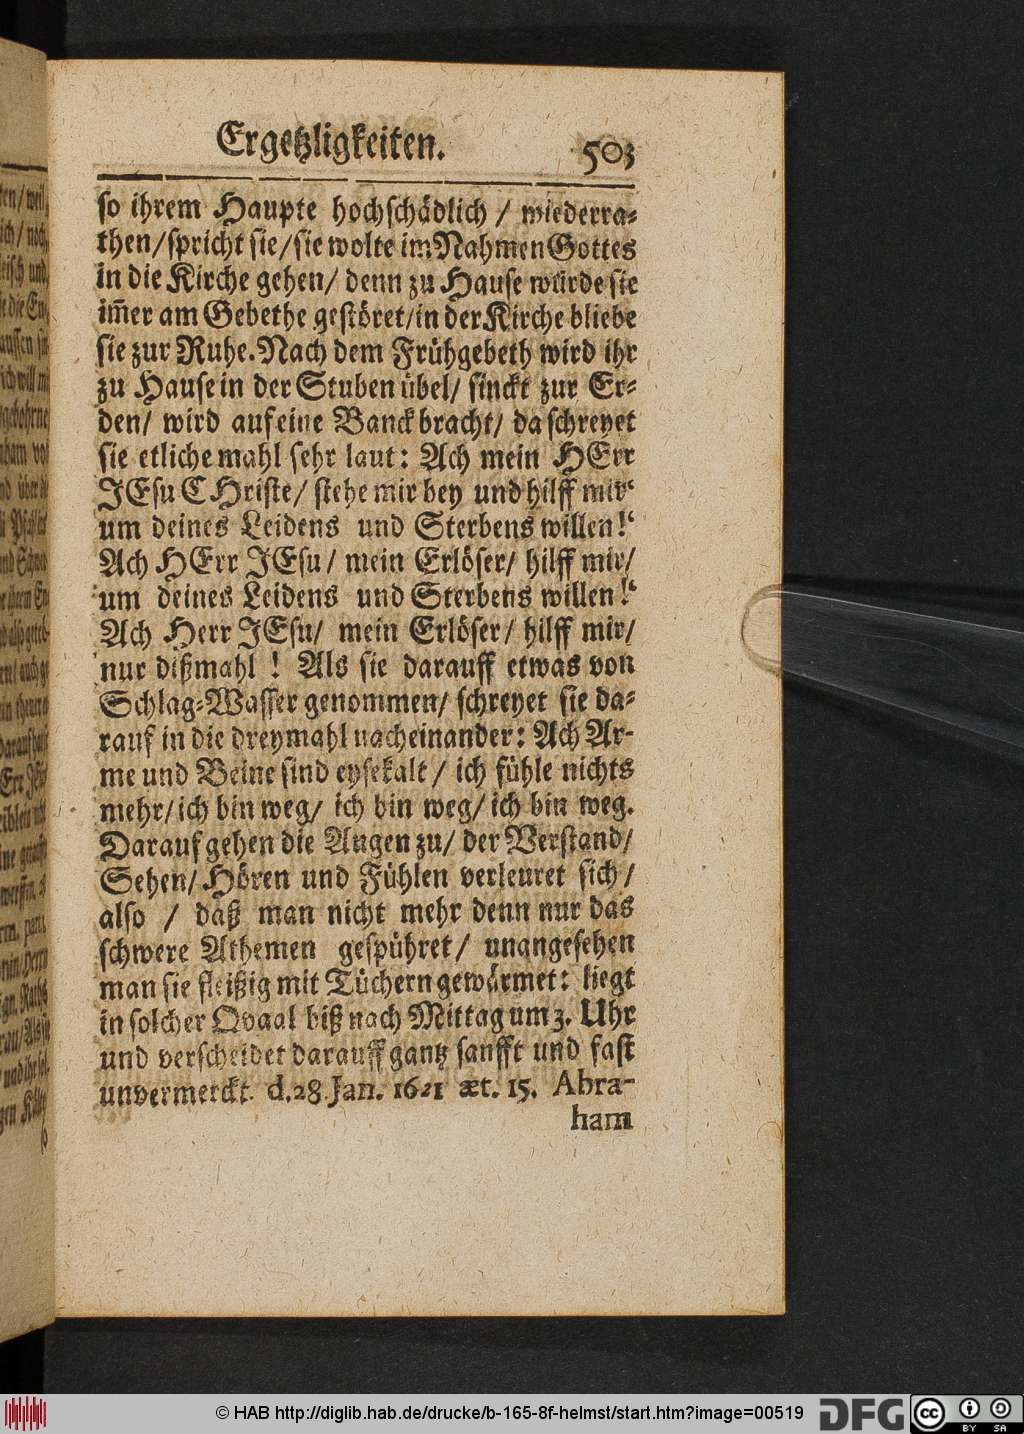 Ergetzligkeiten. 503
so ihrem Haupte hochschädlich / wiederra-
then/spricht sie/sie wolte im Nahmen Gottes
in die Kirche gehen/ denn zu Hause würde sie
im̃er am Gebethe gestöret/in der Kirche bliebe
sie zur Ruhe. Nach dem Frühgebeth wird ihr
zu Hause in der Stuben übel/ sinckt zur Er-
den/ wird auf eine Banck bracht/ da schreyet
sie etliche mahl sehr laut: Ach mein HErr
JEsu CHriste/ stehe mir bey und hilff mir
um deines Leidens und Sterbens willen!
Ach HErr JEsu/ mein Erlöser/ hilff mir/
um deines Leidens und Sterbens willen!
Ach Herr JEsu/ mein Erlöser/ hilff mir/
nur dißmahl ! Als sie darauff etwas von
Schlag-Wasser genommen/ schreyet sie da-
rauf in die dreymahl nacheinander: Ach Ar-
me und Beine sind eysekalt / ich fühle nichts
mehr/ich bin weg/ ich bin weg/ ich bin weg.
Darauf gehen die Augen zu/ der Verstand/
Sehen/ Hören und Fühlen verleuret sich/
also / daß man nicht mehr denn nur das
schwere Athemen gespühret/ unangesehen
man sie fleißig mit Tüchern gewärmet: liegt
in solcher Qvaal biß nach Mittag um 3. Uhr
und verscheidet darauff gantz sanfft und fast
unvermerckt. d. 28. Jan. 1621 æt. 15. Abra-
ham
© HAB http://diglib.hab.de/drucke/b-165-8f-helmst/start.htm?image=00519
DFG
cc
BY SA